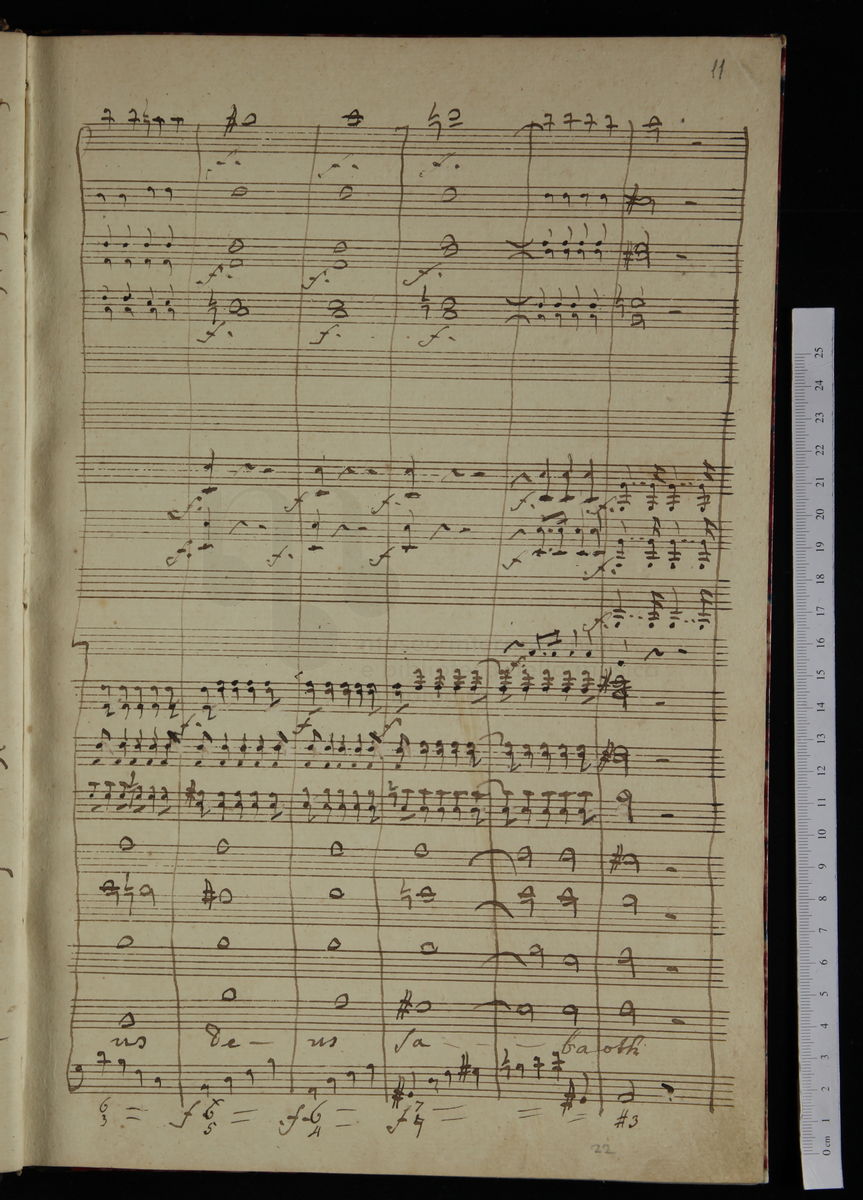 11
f. f. f.
f. f. f.
f. f. f.
f. f. f. f. f.
f. f. f. f. f.
f.
f. f f
us De - us Sa - - ba oth
6 = f 6 = f. 6 = f 7 = = = #3
3 5 4 4
22
0 cm 1 2 3 4 5 6 7 8 9 10 11 12 13 14 15 16 17 18 19 20 21 22 23 24 25